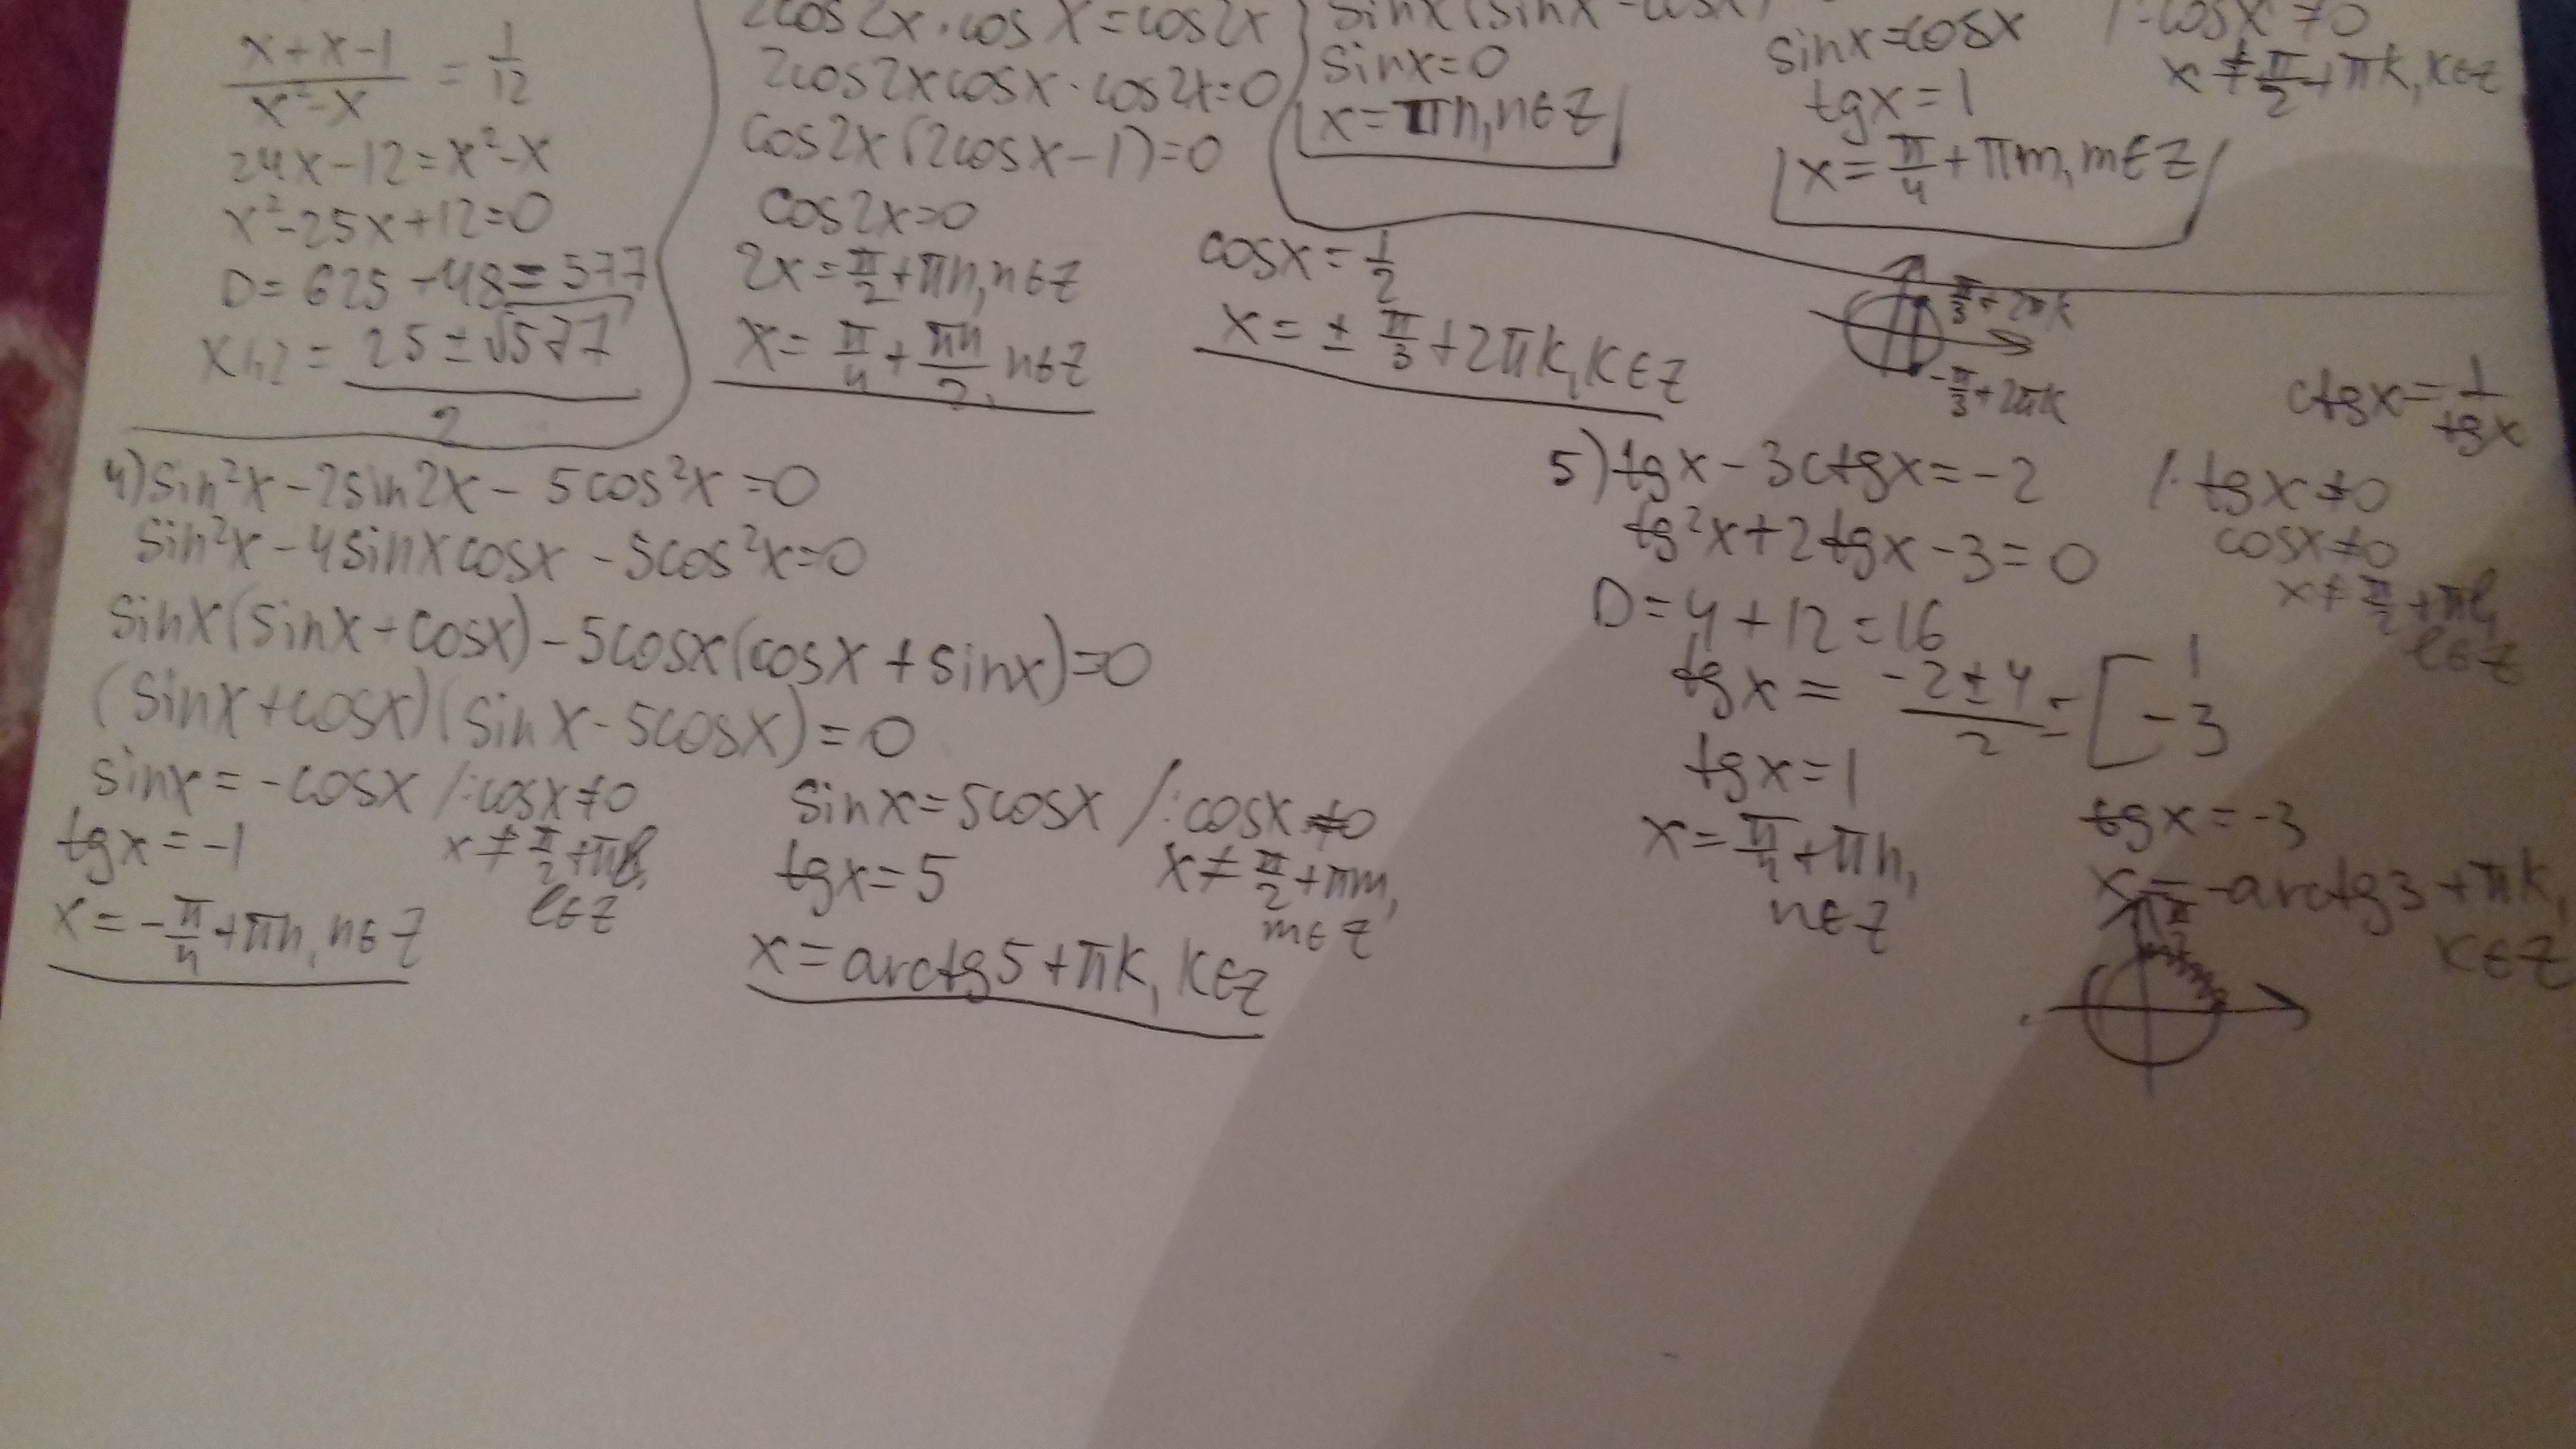 x+x-1 / x²-x = 1/12
24x-12=x²-x
x²-25x+12=0
D=625-48=577
x₁,₂ = 25±√577 / 2
2cos2x·cosx=cos2x
2cos2xcosx·cos2x=0
cos2x(2cosx-1)=0
cos2x=0
2x=π/2+πn, n∈Z
x=π/4+πn/2, n∈Z
cosx=1/2
x=±π/3+2πk, k∈Z
sinx(sinx-cosx)
sinx=0
x=πn, n∈Z
sinx=cosx /:cosx≠0
x≠π/2+πk, k∈Z
tgx=1
x=π/4+πm, m∈Z
π/3+2πk
-π/3+2πk
4) sin²x-2sin2x-5cos²x=0
sin²x-4sinxcosx-5cos²x=0
sinx(sinx+cosx)-5cosx(cosx+sinx)=0
(sinx+cosx)(sinx-5cosx)=0
sinx=-cosx /:cosx≠0
tgx=-1
x≠π/2+πl,
l∈Z
x=-π/4+πn, n∈Z
sinx=5cosx /:cosx≠0
tgx=5
x≠π/2+πm,
m∈Z
x=arctg5+πk, k∈Z
ctgx=1/tgx
5) tgx-3ctgx=-2 /·tgx≠0
tg²x+2tgx-3=0
cosx≠0
x≠π/2+πl,
l∈Z
D=4+12=16
tgx= -2±4 / 2 = [ 1
-3
tgx=1
x=π/4+πn,
n∈Z
tgx=-3
x=-arctg3+πk,
k∈Z
π/2